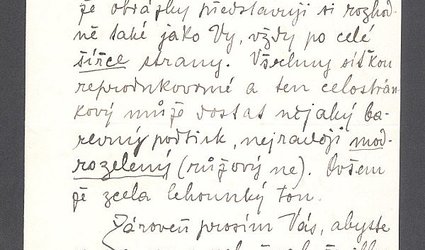 že obrázky představuji si rozhod-
ně také jako Vy, vždy po celé
šířce strany. Všechny síťkou
reprodukované a ten celostrán-
kový může dostat nějaký ba-
revný podtisk, nejraději mod-
rozelený (růžový ne). Ovšem
je zcela lehounký ton.
Zároveň prosím Vás, abyste